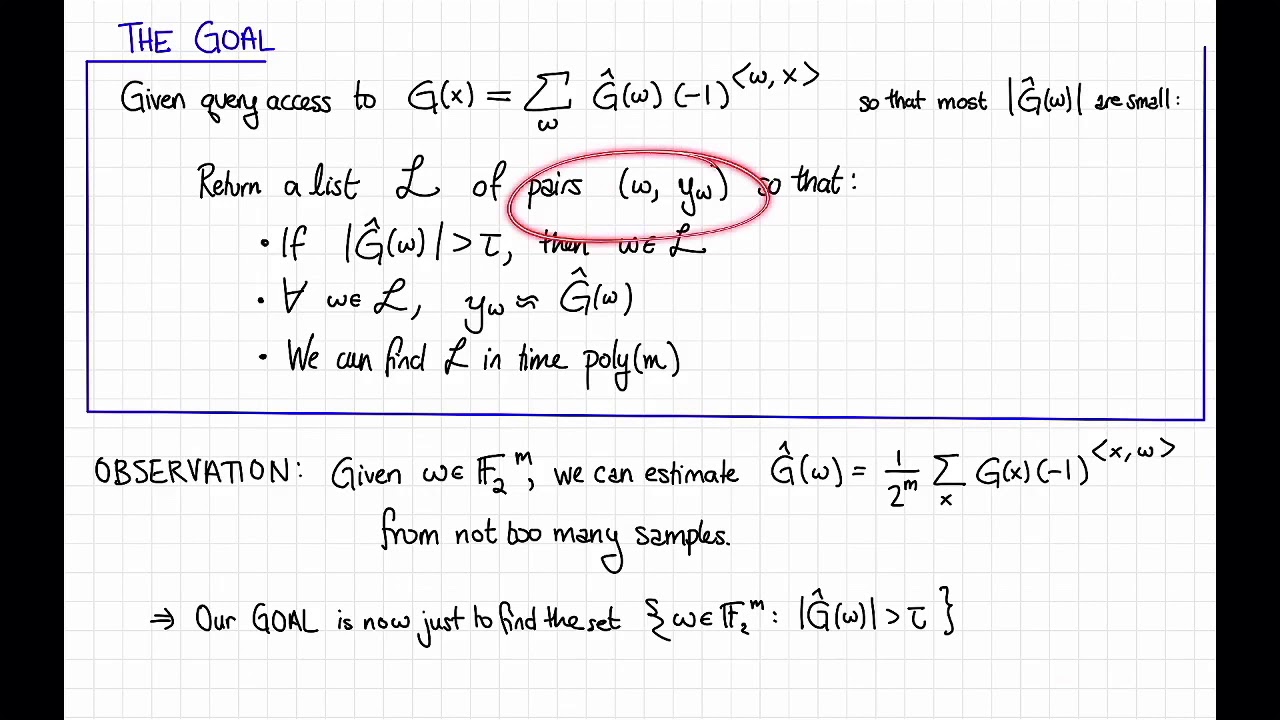 THE GOAL
Given query access to G(x) = ∑_ω Ĝ(ω) (-1)^{<ω, x>} so that most |Ĝ(ω)| are small:
Return a list ℒ of pairs (ω, y_ω) so that:
• If |Ĝ(ω)| > τ, then ω ∈ ℒ
• ∀ ω ∈ ℒ, y_ω ≈ Ĝ(ω)
• We can find ℒ in time poly(m)
OBSERVATION: Given ω ∈ 𝔽_2^m, we can estimate Ĝ(ω) = 1/2^m ∑_x G(x) (-1)^{<x, ω>}
from not too many samples.
⇒ Our GOAL is now just to find the set {ω ∈ 𝔽_2^m : |Ĝ(ω)| > τ}